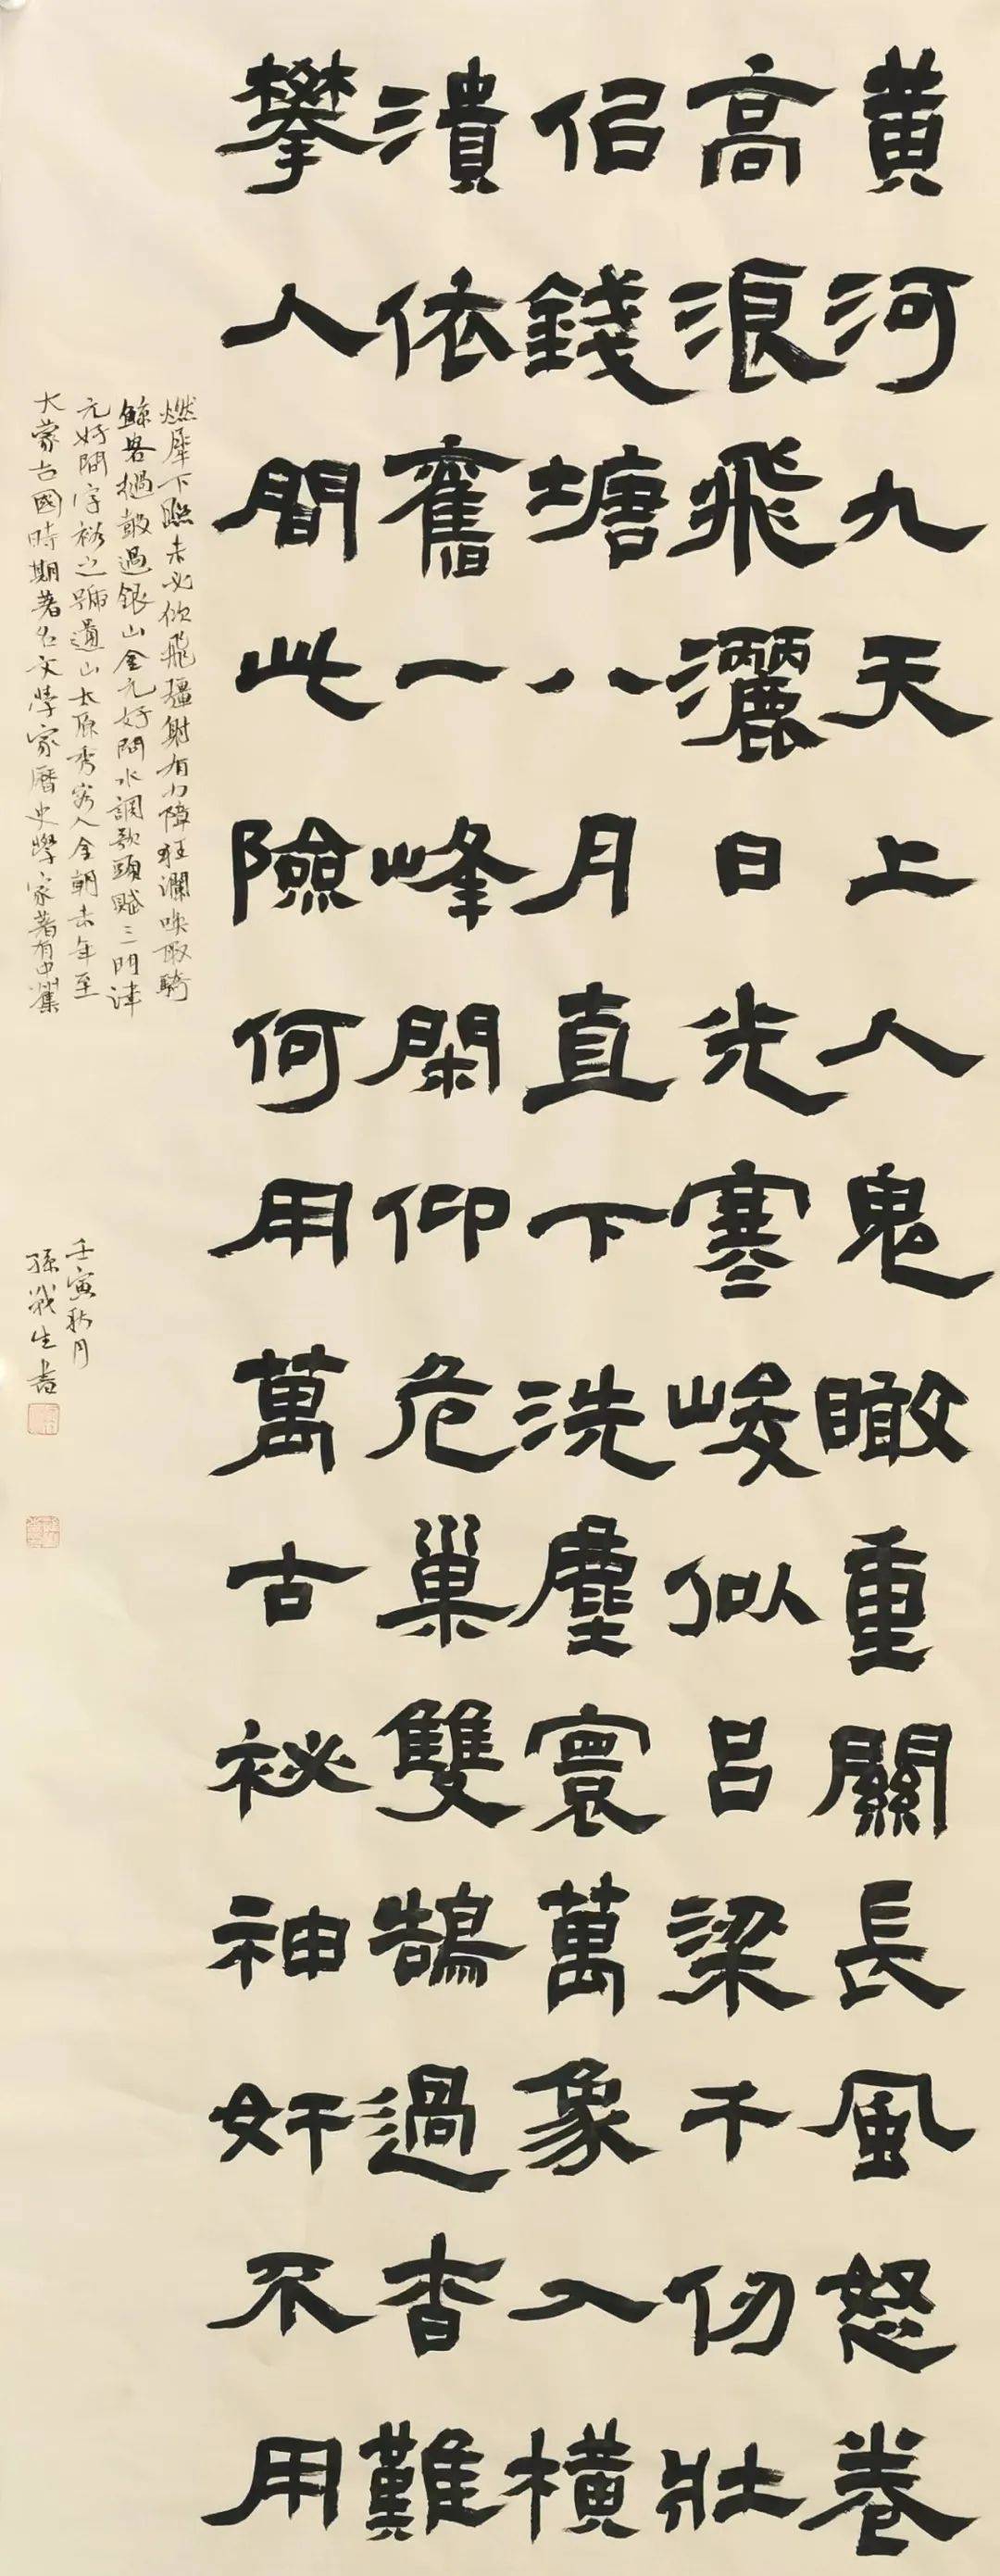 黄河九天上人鬼瞰重關長風怒卷
高浪飛灑日光寒峻似吕梁千仞壮
佀錢塘八月直下洗塵寰萬象入橫
潰依舊一峰閑仰危巢雙鵠過杳難
攀人間此險何用萬古祕神奸不用
燃犀下照未必佽飛彊射有力障狂瀾唤取騎
鯨客撾鼓過銀山金元好問水調歌頭賦三門津
元好問字裕之號遺山太原秀容人金朝末年至
大蒙古國時期著名文學家曆史學家著有中州集
壬寅秋月
孫戰生書